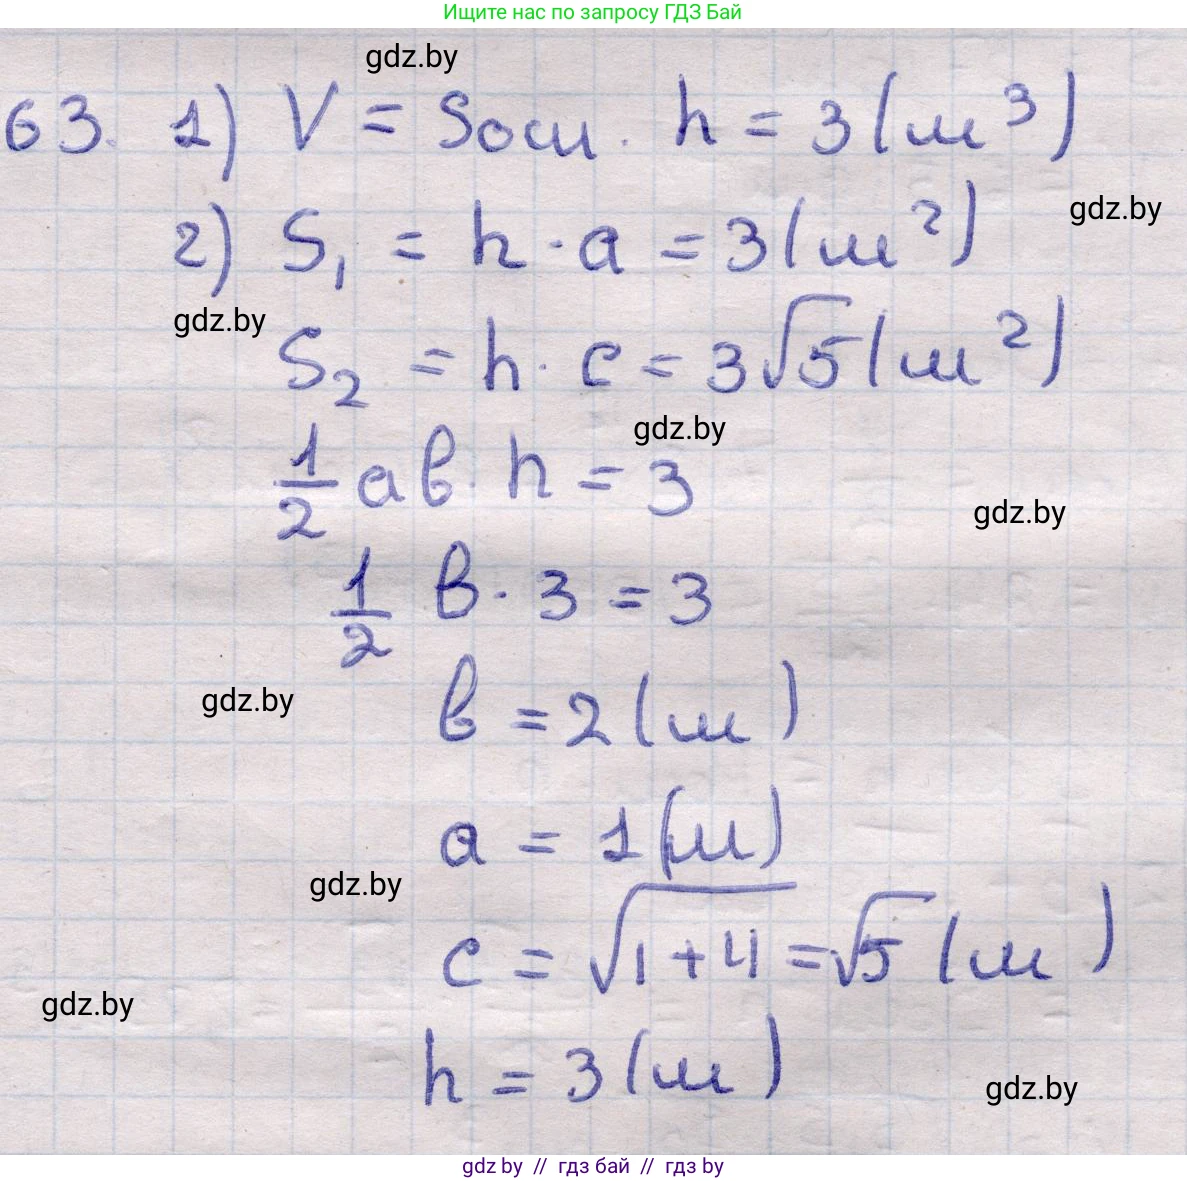 Ищите нас по запросу ГДЗ Бай
gdz.by
63. 1) V = Sосн. h = 3 (м³)
gdz.by
2) S₁ = h · a = 3 (м²)
gdz.by
S₂ = h · c = 3√5 (м²)
gdz.by
1/2 ab · h = 3
gdz.by
1/2 b · 3 = 3
gdz.by
b = 2 (м)
a = 1 (м)
gdz.by
c = √(1+4) = √5 (м)
gdz.by
h = 3 (м)
gdz.by
gdz by // гдз бай // гдз by